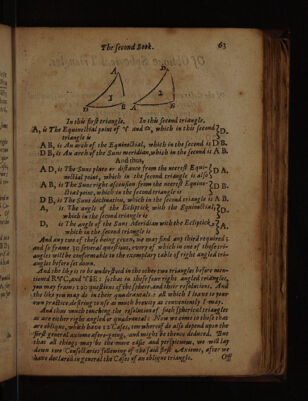 The second Book. 63
A D
1 2
D B A B
In this first triangle, In this second triangle,
A, is The Equinoctial point of ♈ and ♎, which in this second
triangle is D.
A B, is An arch of the Equinoctial, which in the second is D B.
D B, is An arch of the Suns meridian, which in the second is A B.
And thus,
A D, is The Suns place or distance from the neerest Equi-
noctial point, which in the second triangle is also D A.
A B, is The Suns right ascension from the neerest Equino-
ctial point, which in the second triangle is D B.
D B, is The Suns declination, which in the second triangle is A B.
A, is The angle of the Ecliptick with the Equinoctial,
which in the second triangle is D.
D, is The angle of the Suns Meridian with the Ecliptick,
which in the second triangle is A.
And any two of these being given, we may find any third required:
and so frame 30 severall questions, every of which in one of these tri-
angles will be conformable to the exemplary table of right angled tri-
angles before set down.
And the like is to be understood in the other two triangles before men-
tioned so that in these four right angled triangles,
you may frame 120 questions of the sphere and their resolutions. And
the like you may do in their quadrantals: all which I leave to your
own practice desiring to use as much brevity as conveniently I may.
And thus much touching the resolution of such spherical triangles
as are either right angled or quadrantal: Now we come to those that
are oblique, which have 12 Cases, ten whereof do also depend upon the
first general axiome afore-going, and might be thence deduced. But
that all things may be the more easie and perspicuous, we will lay
down two Consectaries following of the said first Axiome, after we
have declared in general the Cases of an oblique triangle. Off